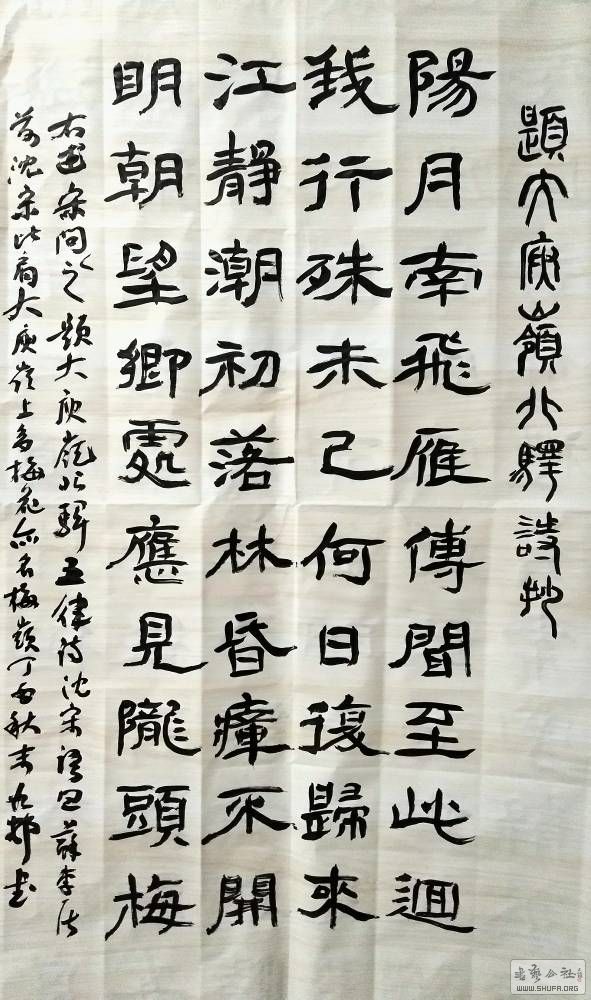 題大庾嶺北驛詩抄
陽月南飛雁傳聞至此迴
我行殊未已何日復歸來
江靜潮初落林昏瘴不開
明朝望鄉處應見隴頭梅
右書宋問之題大庾嶺北驛五律詩沈宋語曰蘇李居
前沈宋比肩大庾嶺上多梅花亦名梅嶺丁酉秋書
書藝公社
WWW.SHUFA.ORG